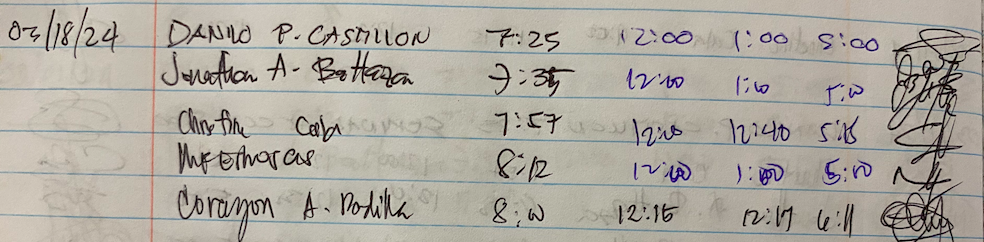 03/18/24 DANILO P. CASTILLON 7:25 12:00 1:00 5:00
Jonathan A. 7:35 12:00 1:00 5:00
7:57 12:00 12:40 5:15
8:12 12:00 1:00 5:10
Corazon A. Padilla 8:00 12:15 12:17 6:11